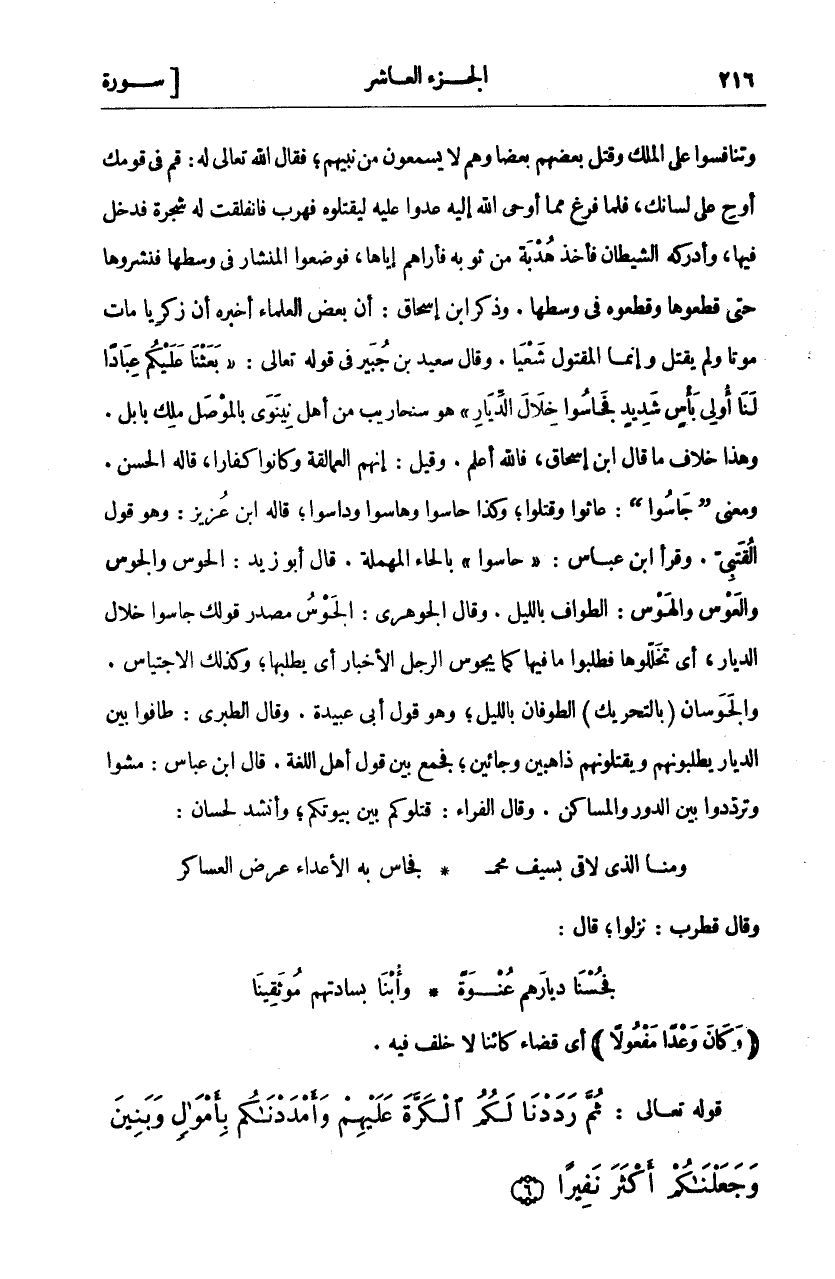 ٢١٦ الجـزء العـاشر [ ســورة
وتنافسوا على الملك وقتل بعضهم بعضا وهم لا يسمعون من نبيهم؛ فقال الله تعالى له: قم فى قومك
أوح على لسانك، فلما فرغ مما أوحى الله إليه عدوا عليه ليقتلوه فهرب فانفلقت له شجرة فدخل
فيها، وأدركه الشيطان فأخذ هُدْبَة من ثوبه فأراهم إياها، فوضعوا المنشار فى وسطها فنشروها
حتى قطعوها وقطعوه فى وسطها . وذكر ابن إسحاق : أن بعض العلماء أخبره أن زكريا مات
موتا ولم يقتل وإنمـا المقتول شَعْيَا . وقال سعيد بن جُبَير فى قوله تعالى : « بَعَثْنَا عَلَيْكُمْ عِبَادًا
لَنَا أُولِى بَأْسٍ شَدِيدٍ فَجَاسُوا خِلَالَ الدِّيَارِ» هو سنحاريب من أهل نِينَوَى بالمَوْصَل ملك بابل .
وهذا خلاف ما قال ابن إسحاق، فالله أعلم . وقيل : إنهم العمالقة وكانوا كفارا، قاله الحسن .
ومعنى ”جَاسُوا“ : عاثوا وقتلوا؛ وكذا حاسوا وهاسوا وداسوا؛ قاله ابن عُزيز : وهو قول
القُتَبِىّ . وقرأ ابن عبـاس : « حاسوا » بالحاء المهملة . قال أبو زيد : الحوس والجوس
والعَوْس والهَوْس : الطواف بالليل . وقال الجوهرى : الجَوْسُ مصدر قولك جاسوا خلال
الديار، أى تخلّلوها فطلبوا ما فيها كما يجوس الرجل الأخبار أى يطلبها؛ وكذلك الاجتياس .
والجَوَسان (بالتحريك) الطوفان بالليل؛ وهو قول أبى عبيدة . وقال الطبرى : طافوا بين
الديار يطلبونهم ويقتلونهم ذاهبين وجائين؛ فجمع بين قول أهل اللغة . قال ابن عباس : مشوا
وتردّدوا بين الدور والمساكن . وقال الفراء : قتلوكم بين بيوتكم؛ وأنشد لحسان :
ومنـا الذى لاقى بسيف محمد * فجاس به الأعداء عرض العساكر
وقال قطرب : نزلوا؛ قال :
فَجُسْنَا ديارَهم عُنْـوَةً * وأُبْنَا بسادتهم مُوثَقِينَا
﴿ وَكَانَ وَعْدًا مَفْعُولًا ﴾ أى قضاء كائنا لا خلف فيه .
قوله تعـالى : ثُمَّ رَدَدْنَا لَكُمُ ٱلْكَرَّةَ عَلَيْهِمْ وَأَمْدَدْنَٰكُم بِأَمْوَٰلٍ وَبَنِينَ
وَجَعَلْنَٰكُمْ أَكْثَرَ نَفِيرًا ۝٦